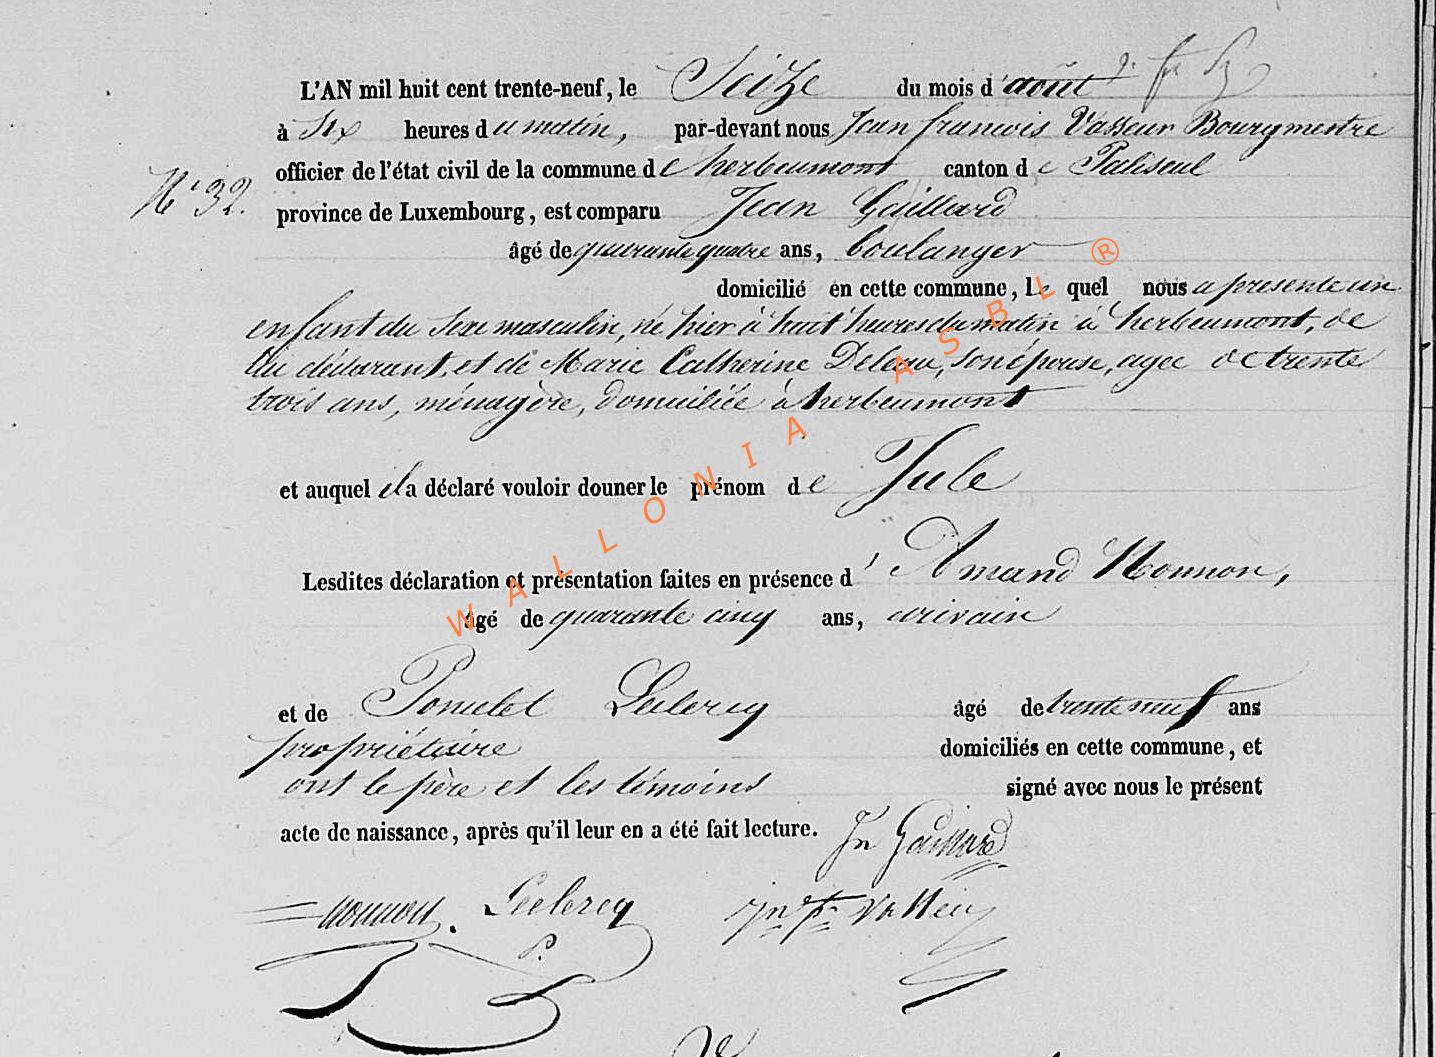 L'AN mil huit cent trente-neuf, le Seize du mois d'août
à Six heures du matin, par-devant nous Jean françois Vasseur Bourgmestre
officier de l'état civil de la commune de herbeumont canton de Paliseul
N° 32. province de Luxembourg, est comparu Jean Gaillard
âgé de quarante quatre ans, boulanger
domicilié en cette commune, le quel nous a presenté un
enfant du Sexe masculin, né hier à huit heures du matin à herbeumont, de
lui déclarant, et de Marie Catherine Deleau, son épouse, agée de trente
trois ans, ménagère, domiciliée à herbeumont
et auquel il a déclaré vouloir douner le prénom de Jule
Lesdites déclaration et présentation faites en présence d'Amand Nonnon,
âgé de quarante cinq ans, écrivain
et de Poncelet Leclercq âgé de trente neuf ans
propriétaire domiciliés en cette commune, et
ont le père et les témoins signé avec nous le présent
acte de naissance, après qu'il leur en a été fait lecture. Jn Gaillard
Nonnon. Leclercq Jn fs Vasseur
P.
WALLONIA ASBL ®